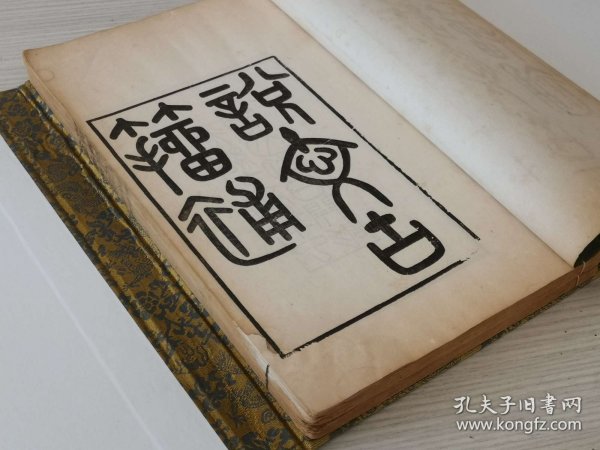 説文古
籀補
孔夫子旧书网
www.kongfz.com